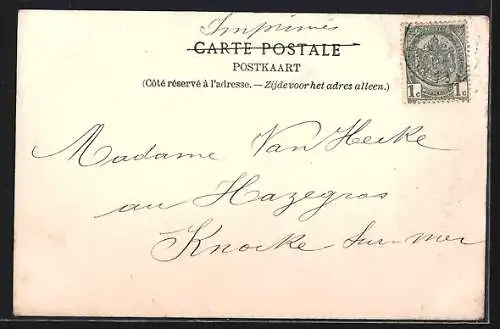 Imprimés
CARTE POSTALE
POSTKAART
(Côté réservé à l'adresse. — Zijde voor het adres alleen.)
1c 1c
Madame Van Hecke
au Hazegras
Knocke sur-mer